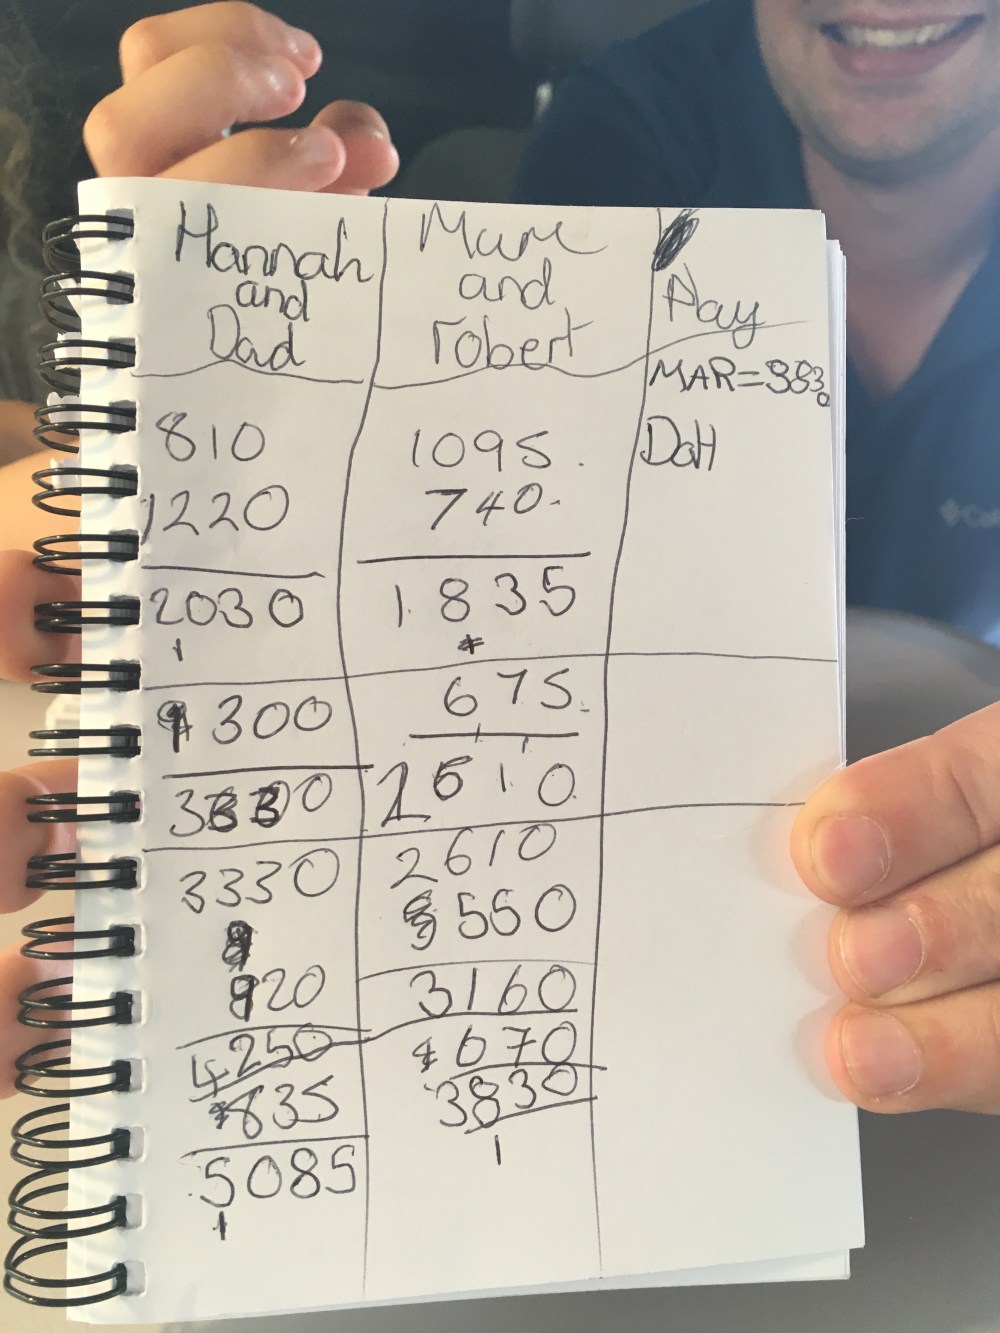 Hannah
and
Dad
810
1220
2030
1
1300
3330
3330
920
4250
835
5085
1
Mum
and
robert
1095.
740.
1835
675.
2610
2610
550
3160
670
3830
1
Play
MAR=3830
DaH